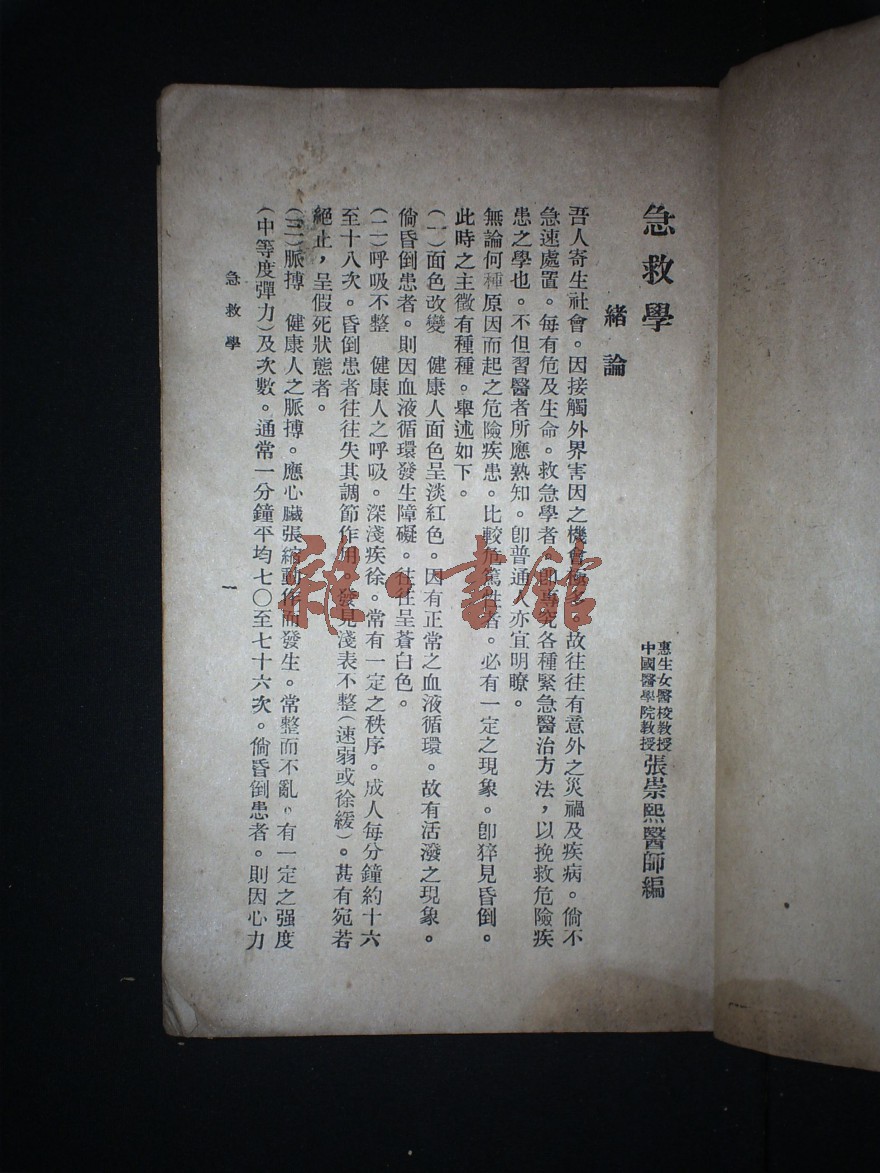 急救學
惠生女醫校教授
中國醫學院教授
張崇熙醫師編
緒論
吾人寄生社會。因接觸外界害因之機會極多。故往往有意外之災禍及疾病。倘不
急速處置。每有危及生命。救急學者。卽專究各種緊急醫治方法，以挽救危險疾
患之學也。不但習醫者所應熟知。卽普通人亦宜明瞭。
無論何種原因而起之危險疾患。比較危篤性者。必有一定之現象。卽猝見昏倒。
此時之主徵有種種。舉述如下。
(一)面色改變　健康人面色呈淡紅色。因有正常之血液循環。故有活潑之現象。
倘昏倒患者。則因血液循環發生障礙。往往呈蒼白色。
(二)呼吸不整　健康人之呼吸。深淺疾徐。常有一定之秩序。成人每分鐘約十六
至十八次。昏倒患者往往失其調節作用。發見淺表不整(速弱或徐緩)。甚有宛若
絕止，呈假死狀態者。
(三)脈搏　健康人之脈搏。應心臟張縮動作而發生。常整而不亂。有一定之强度
(中等度彈力)及次數。通常一分鐘平均七〇至七十六次。倘昏倒患者。則因心力
急救學
一
雜·書館